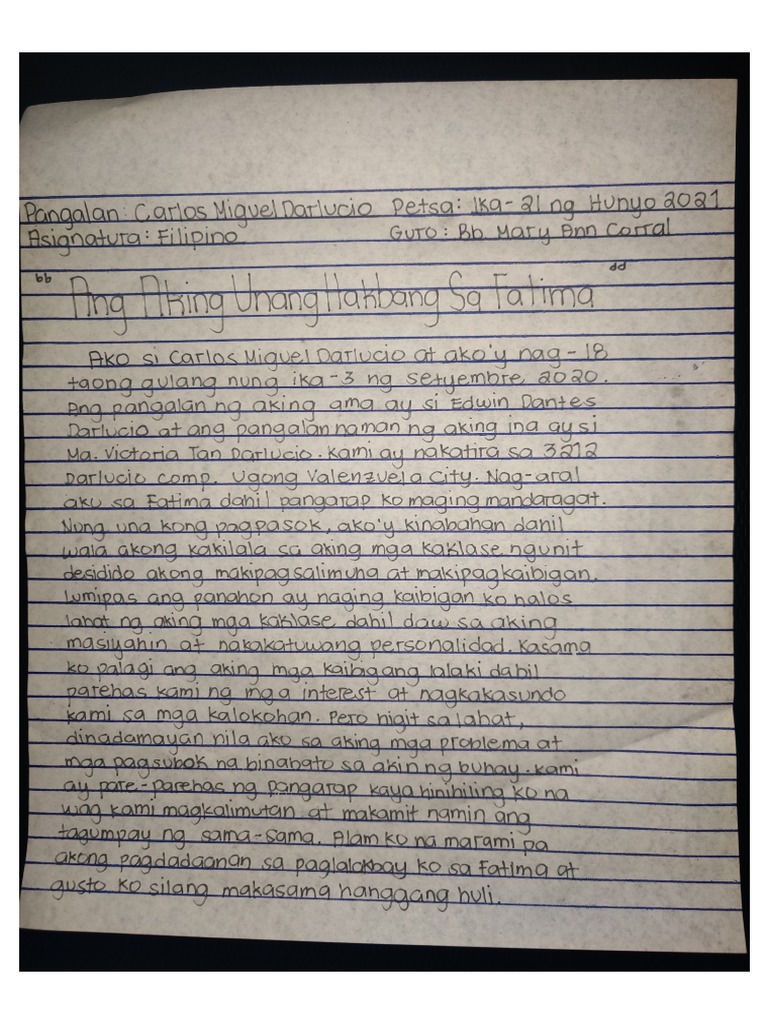 Pangalan: Carlos Miguel Darlucio Petsa: Ika-21 ng Hunyo 2021
Asignatura: Filipino Guro: Bb. Mary Ann Corral
bb Ang Aking Unang Hakbang Sa Fatima dd
Ako si Carlos Miguel Darlucio at ako'y nag-18
taong gulang nung ika-3 ng setyembre, 2020.
Ang pangalan ng aking ama ay si Edwin Dantes
Darlucio at ang pangalan naman ng aking ina ay si
Ma. Victoria Tan Darlucio. Kami ay nakatira sa 3212
Darlucio comp. Ugong Valenzuela City. Nag-aral
aku sa Fatima dahil pangarap ko maging mandaragat.
Nung una kong pagpasok, ako'y kinabahan dahil
wala akong kakilala sa aking mga kaklase ngunit
desidido akong makipagsalimuha at makipagkaibigan.
Lumipas ang panahon ay naging kaibigan ko halos
lahat ng aking mga kaklase dahil daw sa aking
masiyahin at nakakatuwang personalidad. Kasama
ko palagi ang aking mga kaibigang lalaki dahil
parehas kami ng mga interest at nagkakasundo
kami sa mga kalokohan. Pero higit sa lahat,
dinadamayan nila ako sa aking mga problema at
mga pagsubok na binabato sa akin ng buhay. Kami
ay pare-parehas ng pangarap kaya hinihiling ko na
wag kami magkalimutan at makamit namin ang
tagumpay ng sama-sama. Alam ko na marami pa
akong pagdadaanan sa paglalakbay ko sa Fatima at
gusto ko silang makasama hanggang huli.